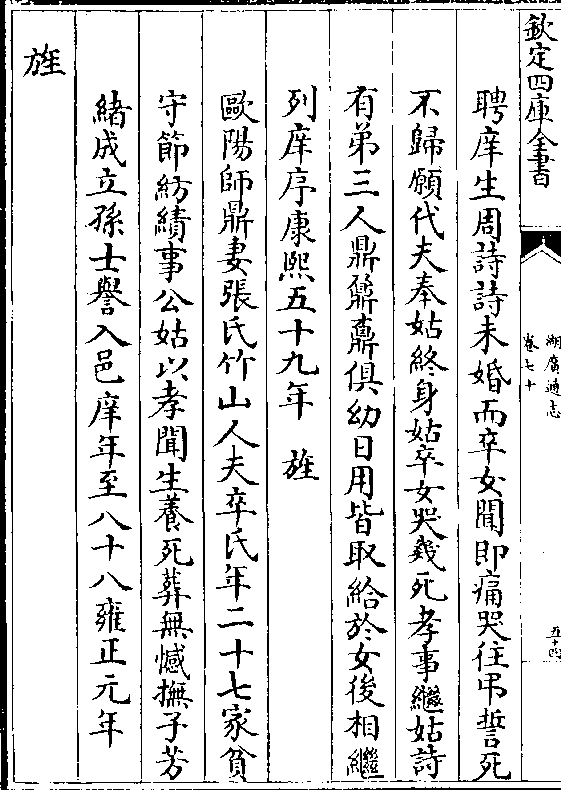 欽定四庫全書
湖廣通志
卷七十
五十四
聘庠生周詩詩未婚而卒女聞即痛哭往弔誓死
不歸願代夫奉姑終身姑卒女哭㡬死孝事繼姑詩
有弟三人鼎鼐鼒俱幼日用皆取給於女後相繼
列庠序康熙五十九年 旌
歐陽師鼎妻張氏竹山人夫卒氏年二十七家貧
守節紡績事公姑以孝聞生養死葬無憾撫子芳
緒成立孫士譽入邑庠年至八十八雍正元年
旌